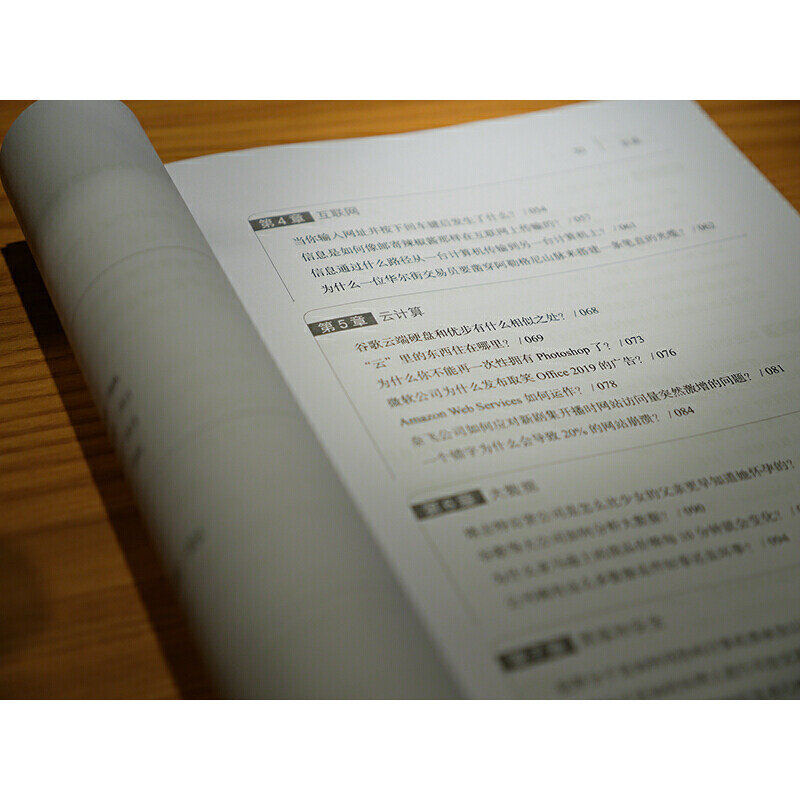 第4章 互联网
当你输入网址并按下回车键后发生了什么? / 054
信息是如何像邮寄辣椒酱那样在互联网上传输的? / 057
信息通过什么路径从一台计算机传输到另一台计算机上? / 061
为什么一位华尔街交易员要凿穿阿勒格尼山脉来搭建一条笔直的光缆? / 062
第5章 云计算
谷歌云端硬盘和优步有什么相似之处? / 068
“云”里的东西住在哪里? / 069
为什么你不能再一次性拥有 Photoshop 了? / 073
微软公司为什么发布取笑 Office 2019 的广告? / 076
Amazon Web Services 如何运作? / 078
奈飞公司如何应对新剧集开播时网站访问量突然激增的问题? / 081
一个错字为什么会导致 20% 的网站崩溃? / 084
第6章 大数据
/ 090
每 10 分钟就会变化?
/ 094